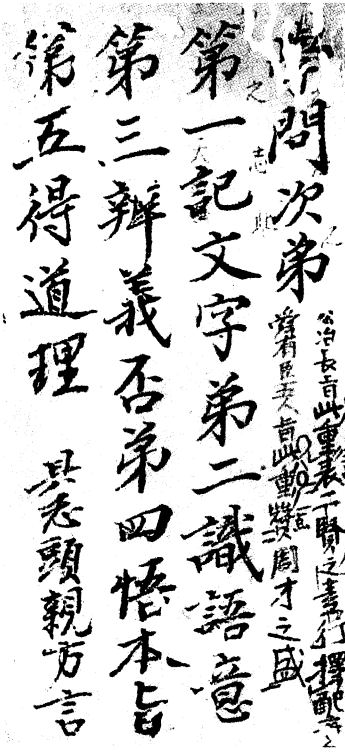 學問次弟
公冶長旨此重表二賢之素行擇配
舜有臣五人旨此重獎周才之盛
第一記文字弟二識語意
第三辨義否弟四悟本旨
第五得道理　具志頭親方言